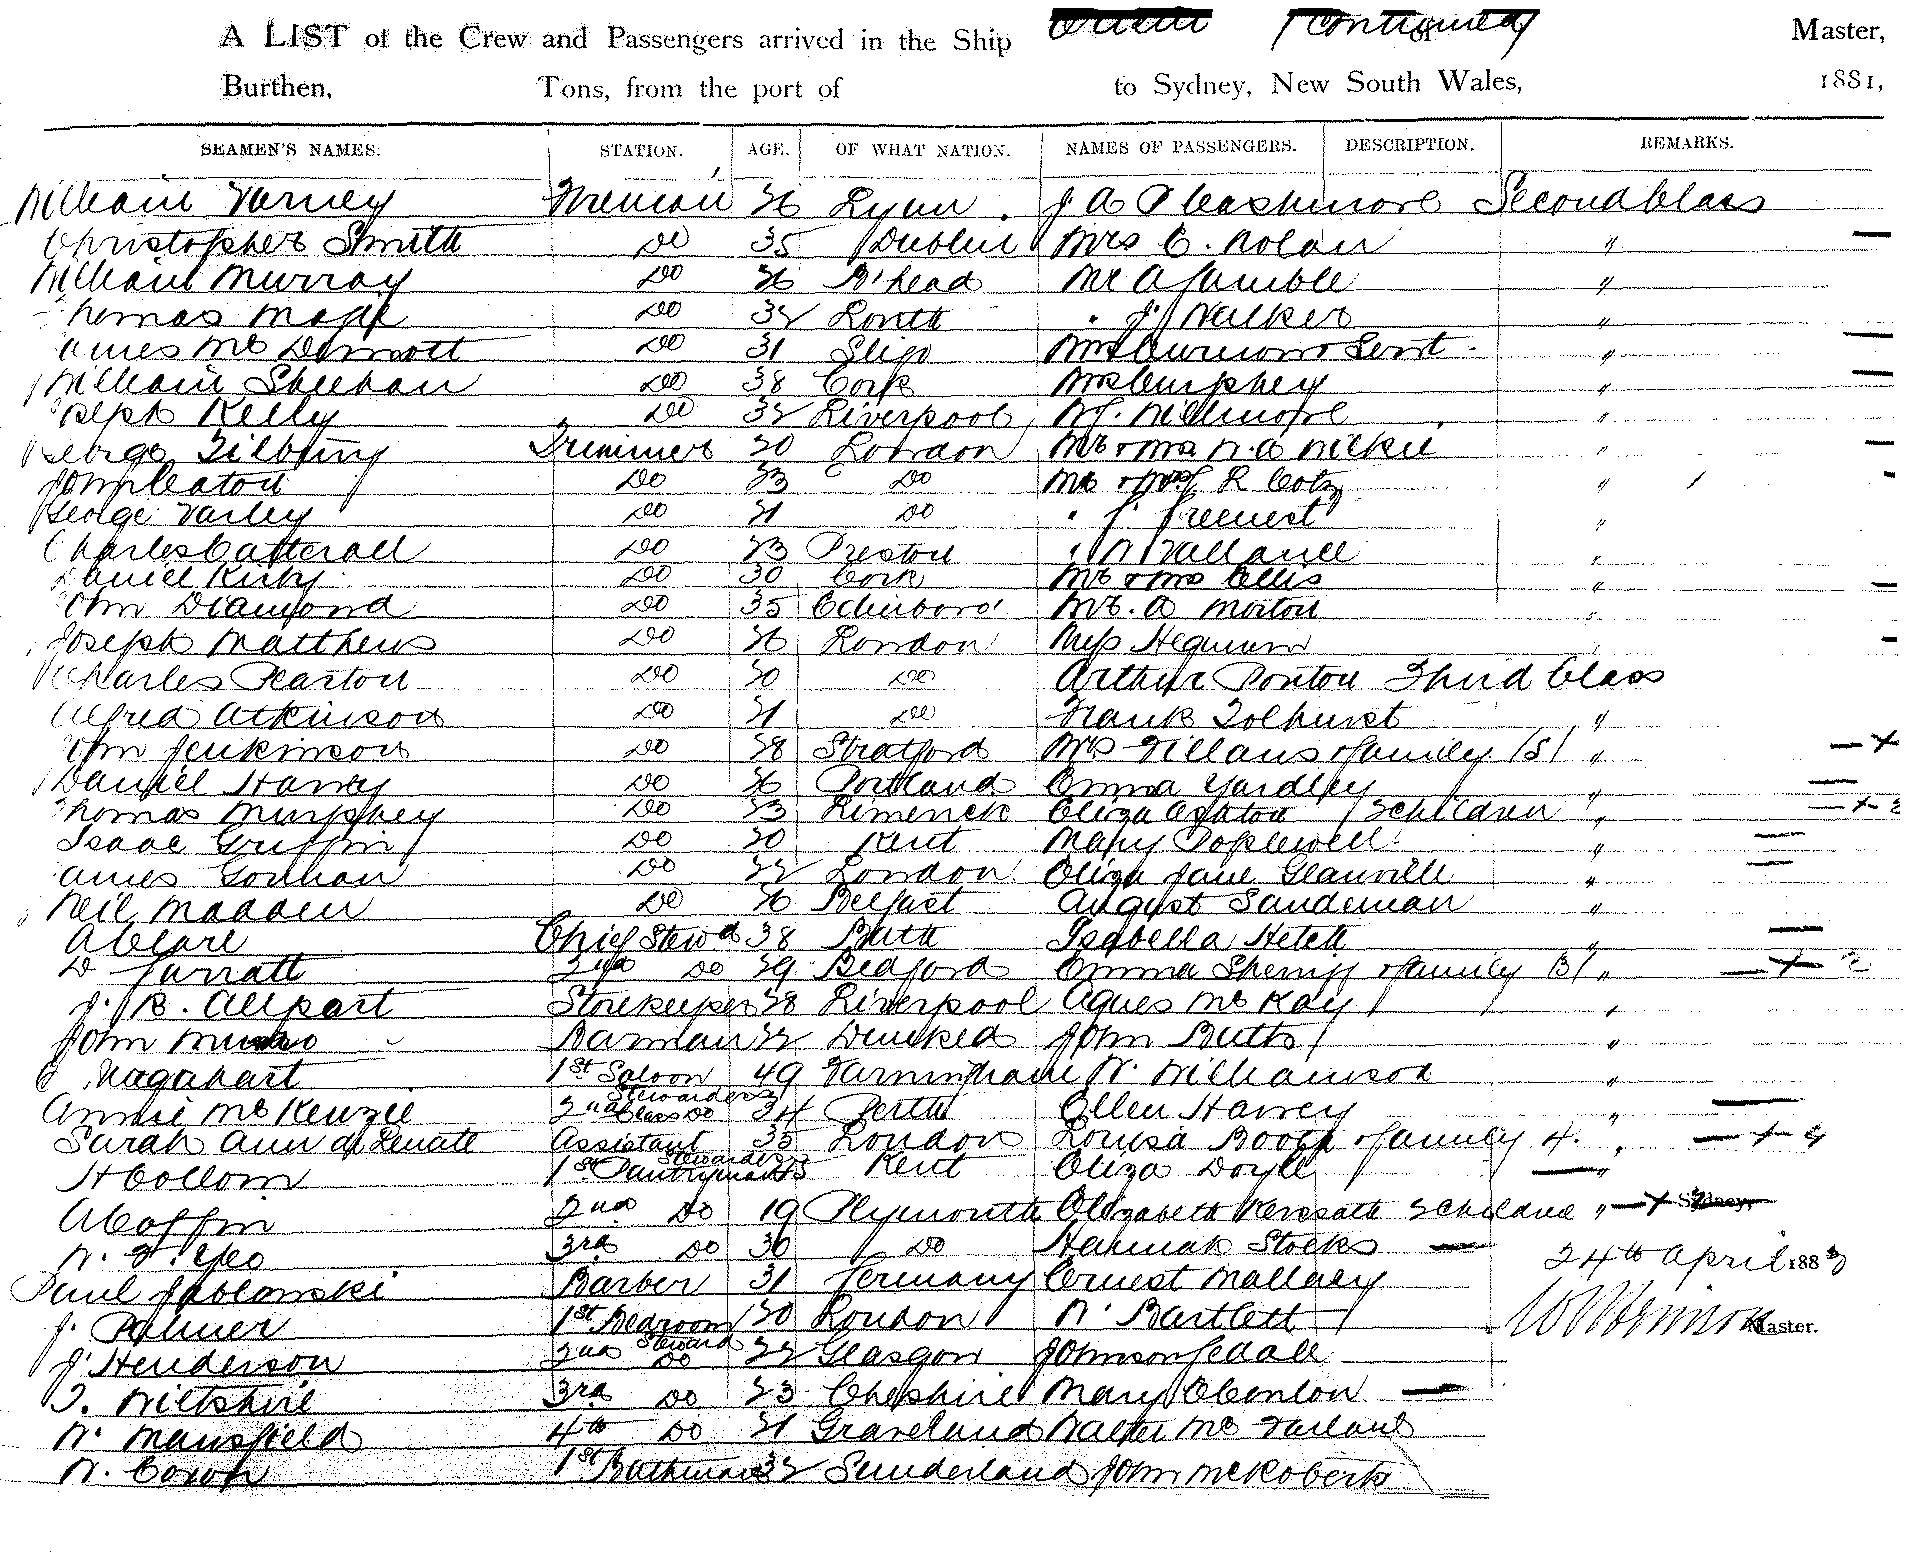 A LIST of the Crew and Passengers arrived in the Ship Orient (continued) of Master,
Burthen, Tons, from the port of to Sydney, New South Wales, 1881,
SEAMEN'S NAMES. STATION. AGE. OF WHAT NATION. NAMES OF PASSENGERS. DESCRIPTION. REMARKS.
William Varney Fireman 26 Lynn. J A Pleashmore Second Class
Christopher Smith Do 35 Dublin Mrs C. Nolan "
William Murray Do 26 B'head Mr A Gamble "
Thomas Do 32 Louth " J. Walker "
James Mc Dermott Do 31 Sligo Servt "
William Sheehan Do 38 Cork Mrs Cumphey "
Joseph Kelly Do 32 Liverpool "
George Trimmer 20 London Mr & Mrs "
John Peaton Do 23 Do Mr & Mrs R "
George Varley Do 21 Do " J. "
Charles Catterall Do 23 Preston " "
Daniel Kirby Do 30 Cork Mr & Mrs Ellis "
John Diamond Do 35 Edinboro' Mr. A Morton "
Joseph Matthews Do 26 London Miss
Charles Pearton Do 20 Do Arthur Ponton Third Class
Alfred Atkinson Do 21 Do Frank Tolhurst "
John Jenkinson Do 28 Stratford Mrs & family (5) "
Daniel Harvey Do 26 Portland Emma Yardley "
Thomas Murphey Do 23 Limerick Eliza Ashton children "
Isaac Griffin Do 20 Kent Mary Poplewell "
James Do 22 London Eliza Jane Glanville "
Neil Madden Do 26 Belfast August Sandeman "
A Clare Chief Stewd 38 Bath Isabella "
D Jarratt 2nd Do 29 Bedford Emma Sherriff & family (3) "
J. B. Allpart Storekeeper 28 Liverpool Agnes McKay "
John Munro Barman 22 John Butts "
1st Saloon Stewardess 49 Farningham W. Williamson "
Annie McKenzie 2nd Class Do 34 Perth Ellen Harvey "
Sarah Ann Assistant Stewardess 35 London Louisa Booth & family 4. "
H Collom 1st Pantryman Kent Eliza Doyle "
A Coffin 2nd Do 19 Plymouth Elizabeth "
Sydney,
3rd Do 30 Do Hannah Stocks
24th April 1883
Paul Jablonski Barber 31 Germany Ernest Mallaey
J. Palmer 1st Bedroom Steward 20 London W. Bartlett
Master.
J. Henderson 2nd Do 22 Glasgow Johnson
T. Wiltshire 3rd Do 23 Cheshire Mary
W. Mansfield 4th Do 21 Gravelend Walter Mc Farland
W. 1st Bathman 32 Sunderland John McRoberts